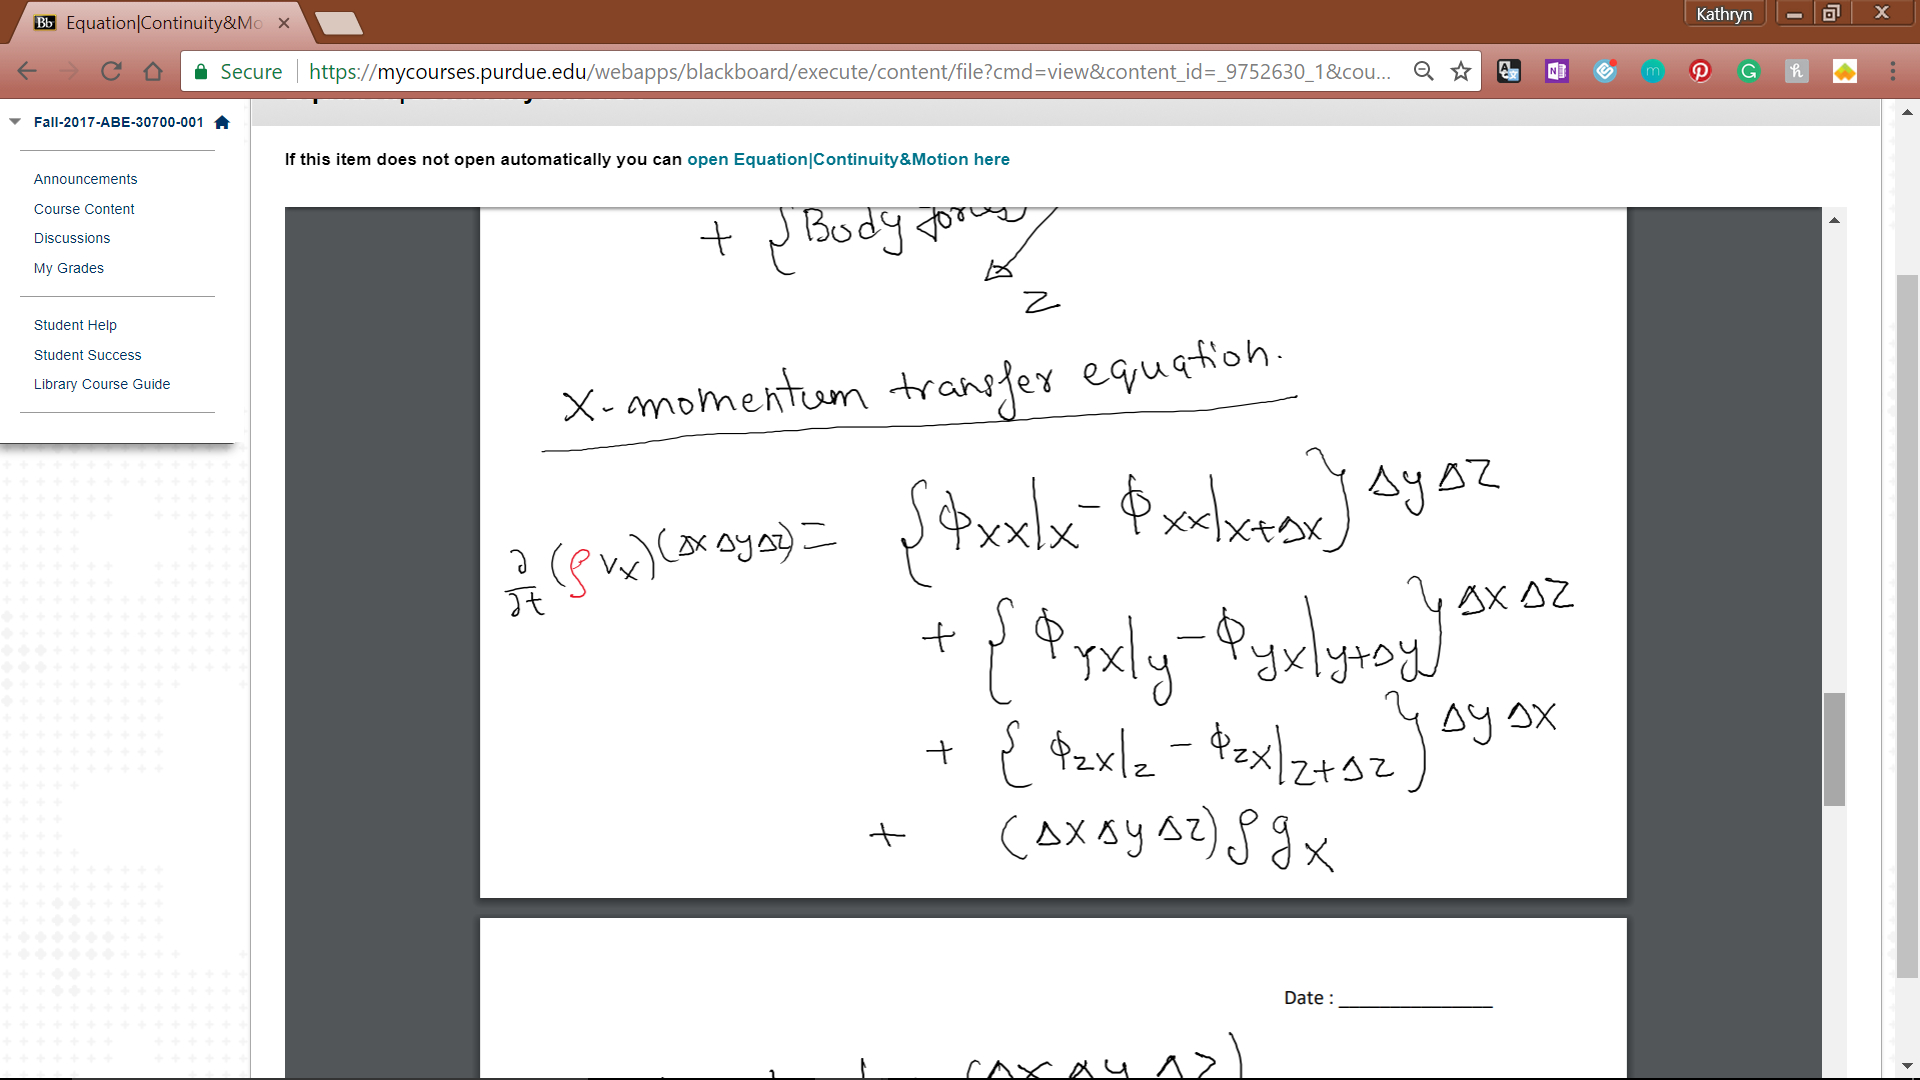 Equation|Continuity&Mo
Kathryn
Secure
https://mycourses.purdue.edu/webapps/blackboard/execute/content/file?cmd=view&content_id=_9752630_1&cou...
Fall-2017-ABE-30700-001
Announcements
Course Content
Discussions
My Grades
Student Help
Student Success
Library Course Guide
If this item does not open automatically you can open Equation|Continuity&Motion here
+ {Body forces
z
X-momentum transfer equation.
∂/∂t (ρ v_x)(Δx Δy Δz) = {ϕ_xx|_x - ϕ_xx|_x+Δx} Δy Δz
+ {ϕ_yx|_y - ϕ_yx|_y+Δy} Δx Δz
+ {ϕ_zx|_z - ϕ_zx|_z+Δz} Δy Δx
+ (Δx Δy Δz) ρ g_x
Date : _______________
(Δx Δy Δz)